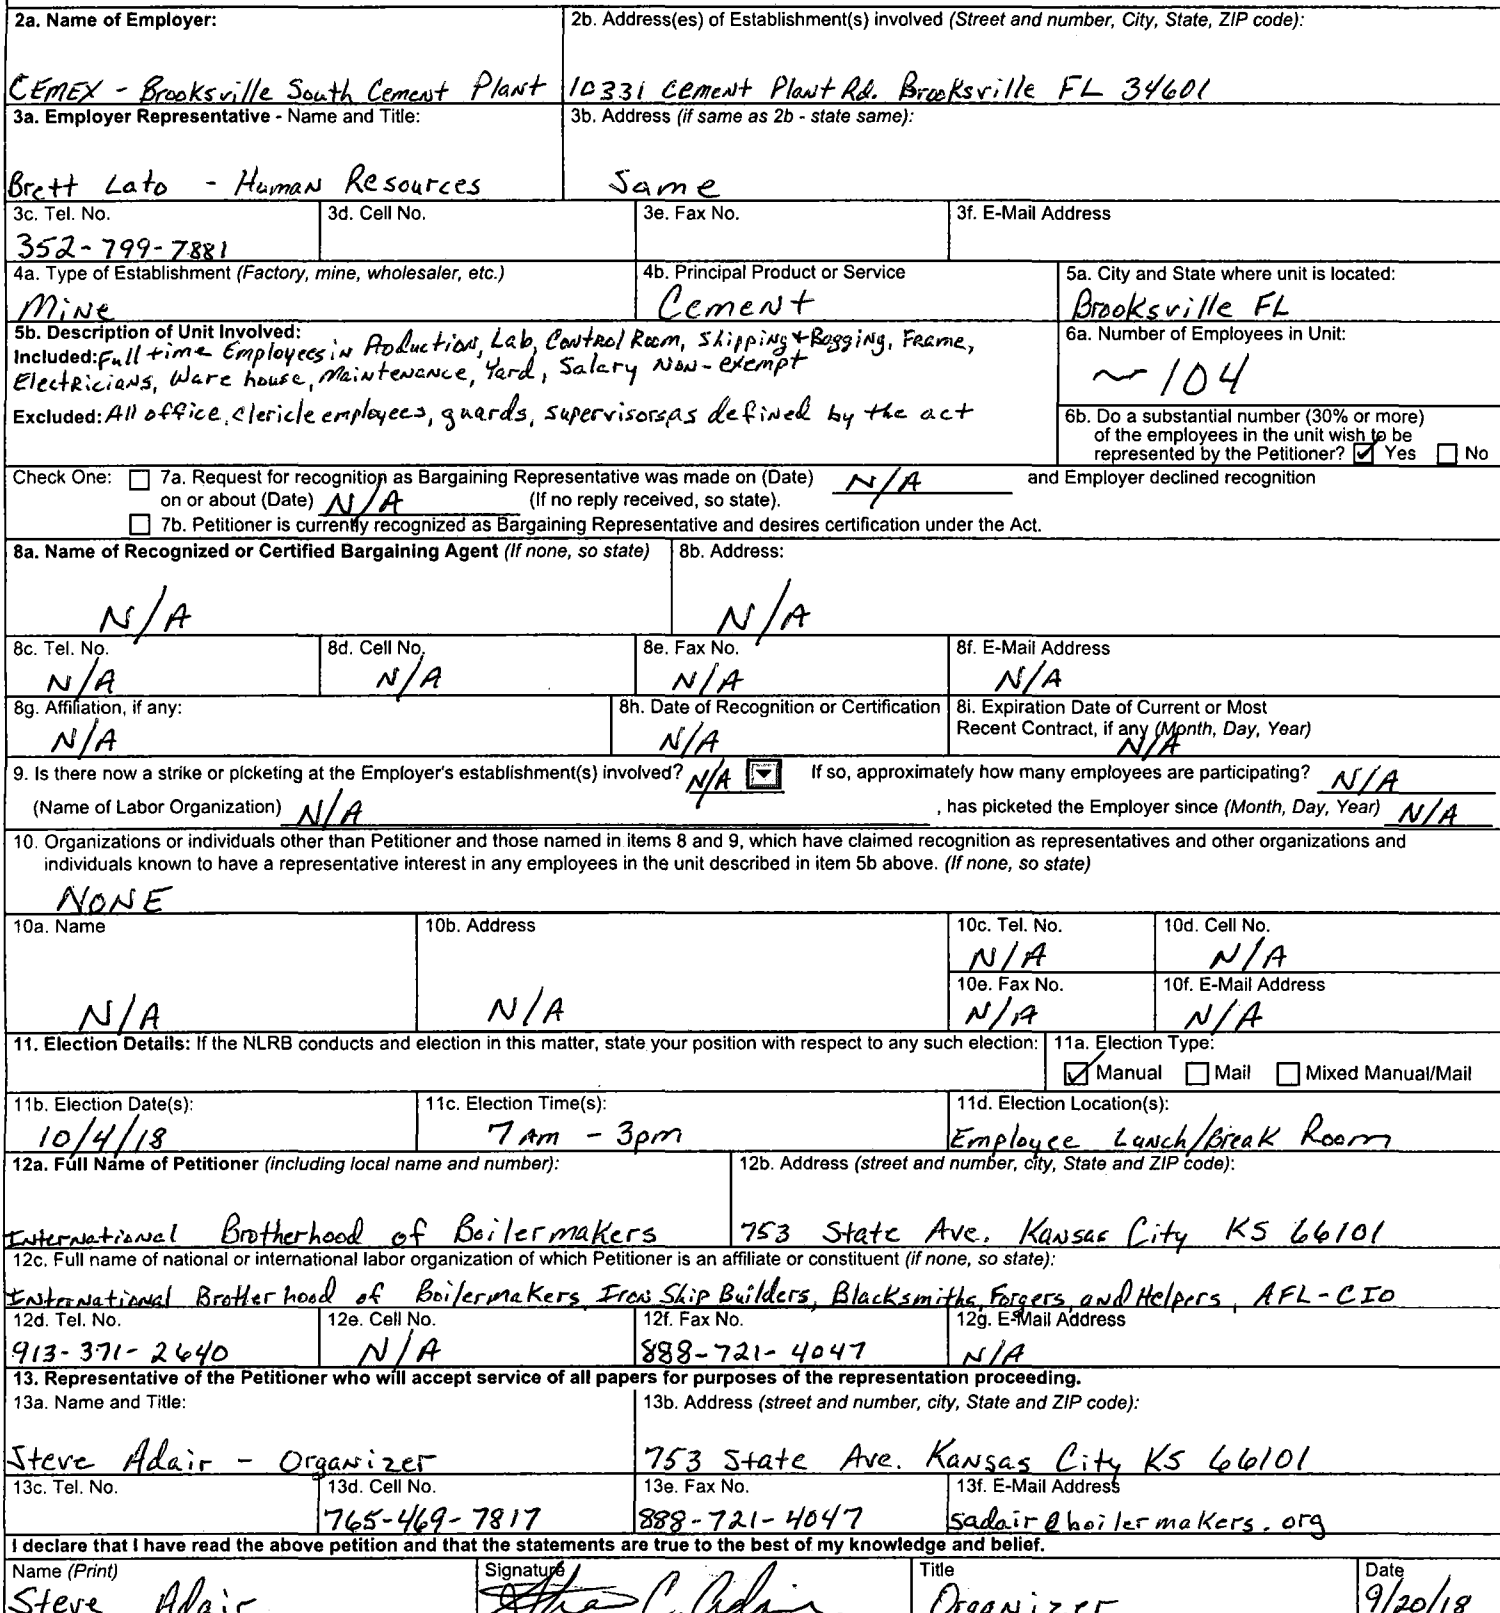 2a. Name of Employer: 2b. Address(es) of Establishment(s) involved (Street and number, City, State, ZIP code):
CEMEX - Brooksville South Cement Plant 10331 Cement Plant Rd. Brooksville FL 34601
3a. Employer Representative - Name and Title: 3b. Address (if same as 2b - state same):
Brett Lato - Human Resources Same
3c. Tel. No. 3d. Cell No. 3e. Fax No. 3f. E-Mail Address
352-799-7881
4a. Type of Establishment (Factory, mine, wholesaler, etc.) 4b. Principal Product or Service 5a. City and State where unit is located:
Mine Cement Brooksville FL
5b. Description of Unit Involved: 6a. Number of Employees in Unit:
Included: Full time Employees in Production, Lab, Control Room, Shipping + Bagging, Frame,
Electricians, Ware house, Maintenance, Yard, Salary Non-exempt ~104
Excluded: All office, clericle employees, guards, supervisors as defined by the act
6b. Do a substantial number (30% or more)
of the employees in the unit wish to be
represented by the Petitioner? Yes No
Check One: 7a. Request for recognition as Bargaining Representative was made on (Date) N/A and Employer declined recognition
on or about (Date) N/A (If no reply received, so state).
7b. Petitioner is currently recognized as Bargaining Representative and desires certification under the Act.
8a. Name of Recognized or Certified Bargaining Agent (If none, so state) 8b. Address:
N/A N/A
8c. Tel. No. 8d. Cell No. 8e. Fax No. 8f. E-Mail Address
N/A N/A N/A N/A
8g. Affiliation, if any: 8h. Date of Recognition or Certification 8i. Expiration Date of Current or Most
Recent Contract, if any (Month, Day, Year)
N/A N/A N/A
9. Is there now a strike or picketing at the Employer's establishment(s) involved? N/A If so, approximately how many employees are participating? N/A
(Name of Labor Organization) N/A , has picketed the Employer since (Month, Day, Year) N/A
10. Organizations or individuals other than Petitioner and those named in items 8 and 9, which have claimed recognition as representatives and other organizations and
individuals known to have a representative interest in any employees in the unit described in item 5b above. (If none, so state)
NONE
10a. Name 10b. Address 10c. Tel. No. 10d. Cell No.
N/A N/A
10e. Fax No. 10f. E-Mail Address
N/A N/A N/A N/A
11. Election Details: If the NLRB conducts and election in this matter, state your position with respect to any such election: 11a. Election Type:
Manual Mail Mixed Manual/Mail
11b. Election Date(s): 11c. Election Time(s): 11d. Election Location(s):
10/4/18 7 Am - 3pm Employee Lunch/Break Room
12a. Full Name of Petitioner (including local name and number): 12b. Address (street and number, city, State and ZIP code):
International Brotherhood of Boilermakers 753 State Ave. Kansas City KS 66101
12c. Full name of national or international labor organization of which Petitioner is an affiliate or constituent (if none, so state):
International Brotherhood of Boilermakers, Iron Ship Builders, Blacksmiths, Forgers, and Helpers, AFL-CIO
12d. Tel. No. 12e. Cell No. 12f. Fax No. 12g. E-Mail Address
913-371-2640 N/A 888-721-4047 N/A
13. Representative of the Petitioner who will accept service of all papers for purposes of the representation proceeding.
13a. Name and Title: 13b. Address (street and number, city, State and ZIP code):
Steve Adair - Organizer 753 State Ave. Kansas City KS 66101
13c. Tel. No. 13d. Cell No. 13e. Fax No. 13f. E-Mail Address
765-469-7817 888-721-4047 sadair@boilermakers.org
I declare that I have read the above petition and that the statements are true to the best of my knowledge and belief.
Name (Print) Signature Title Date
Steve Adair C. Adair Organizer 9/20/18